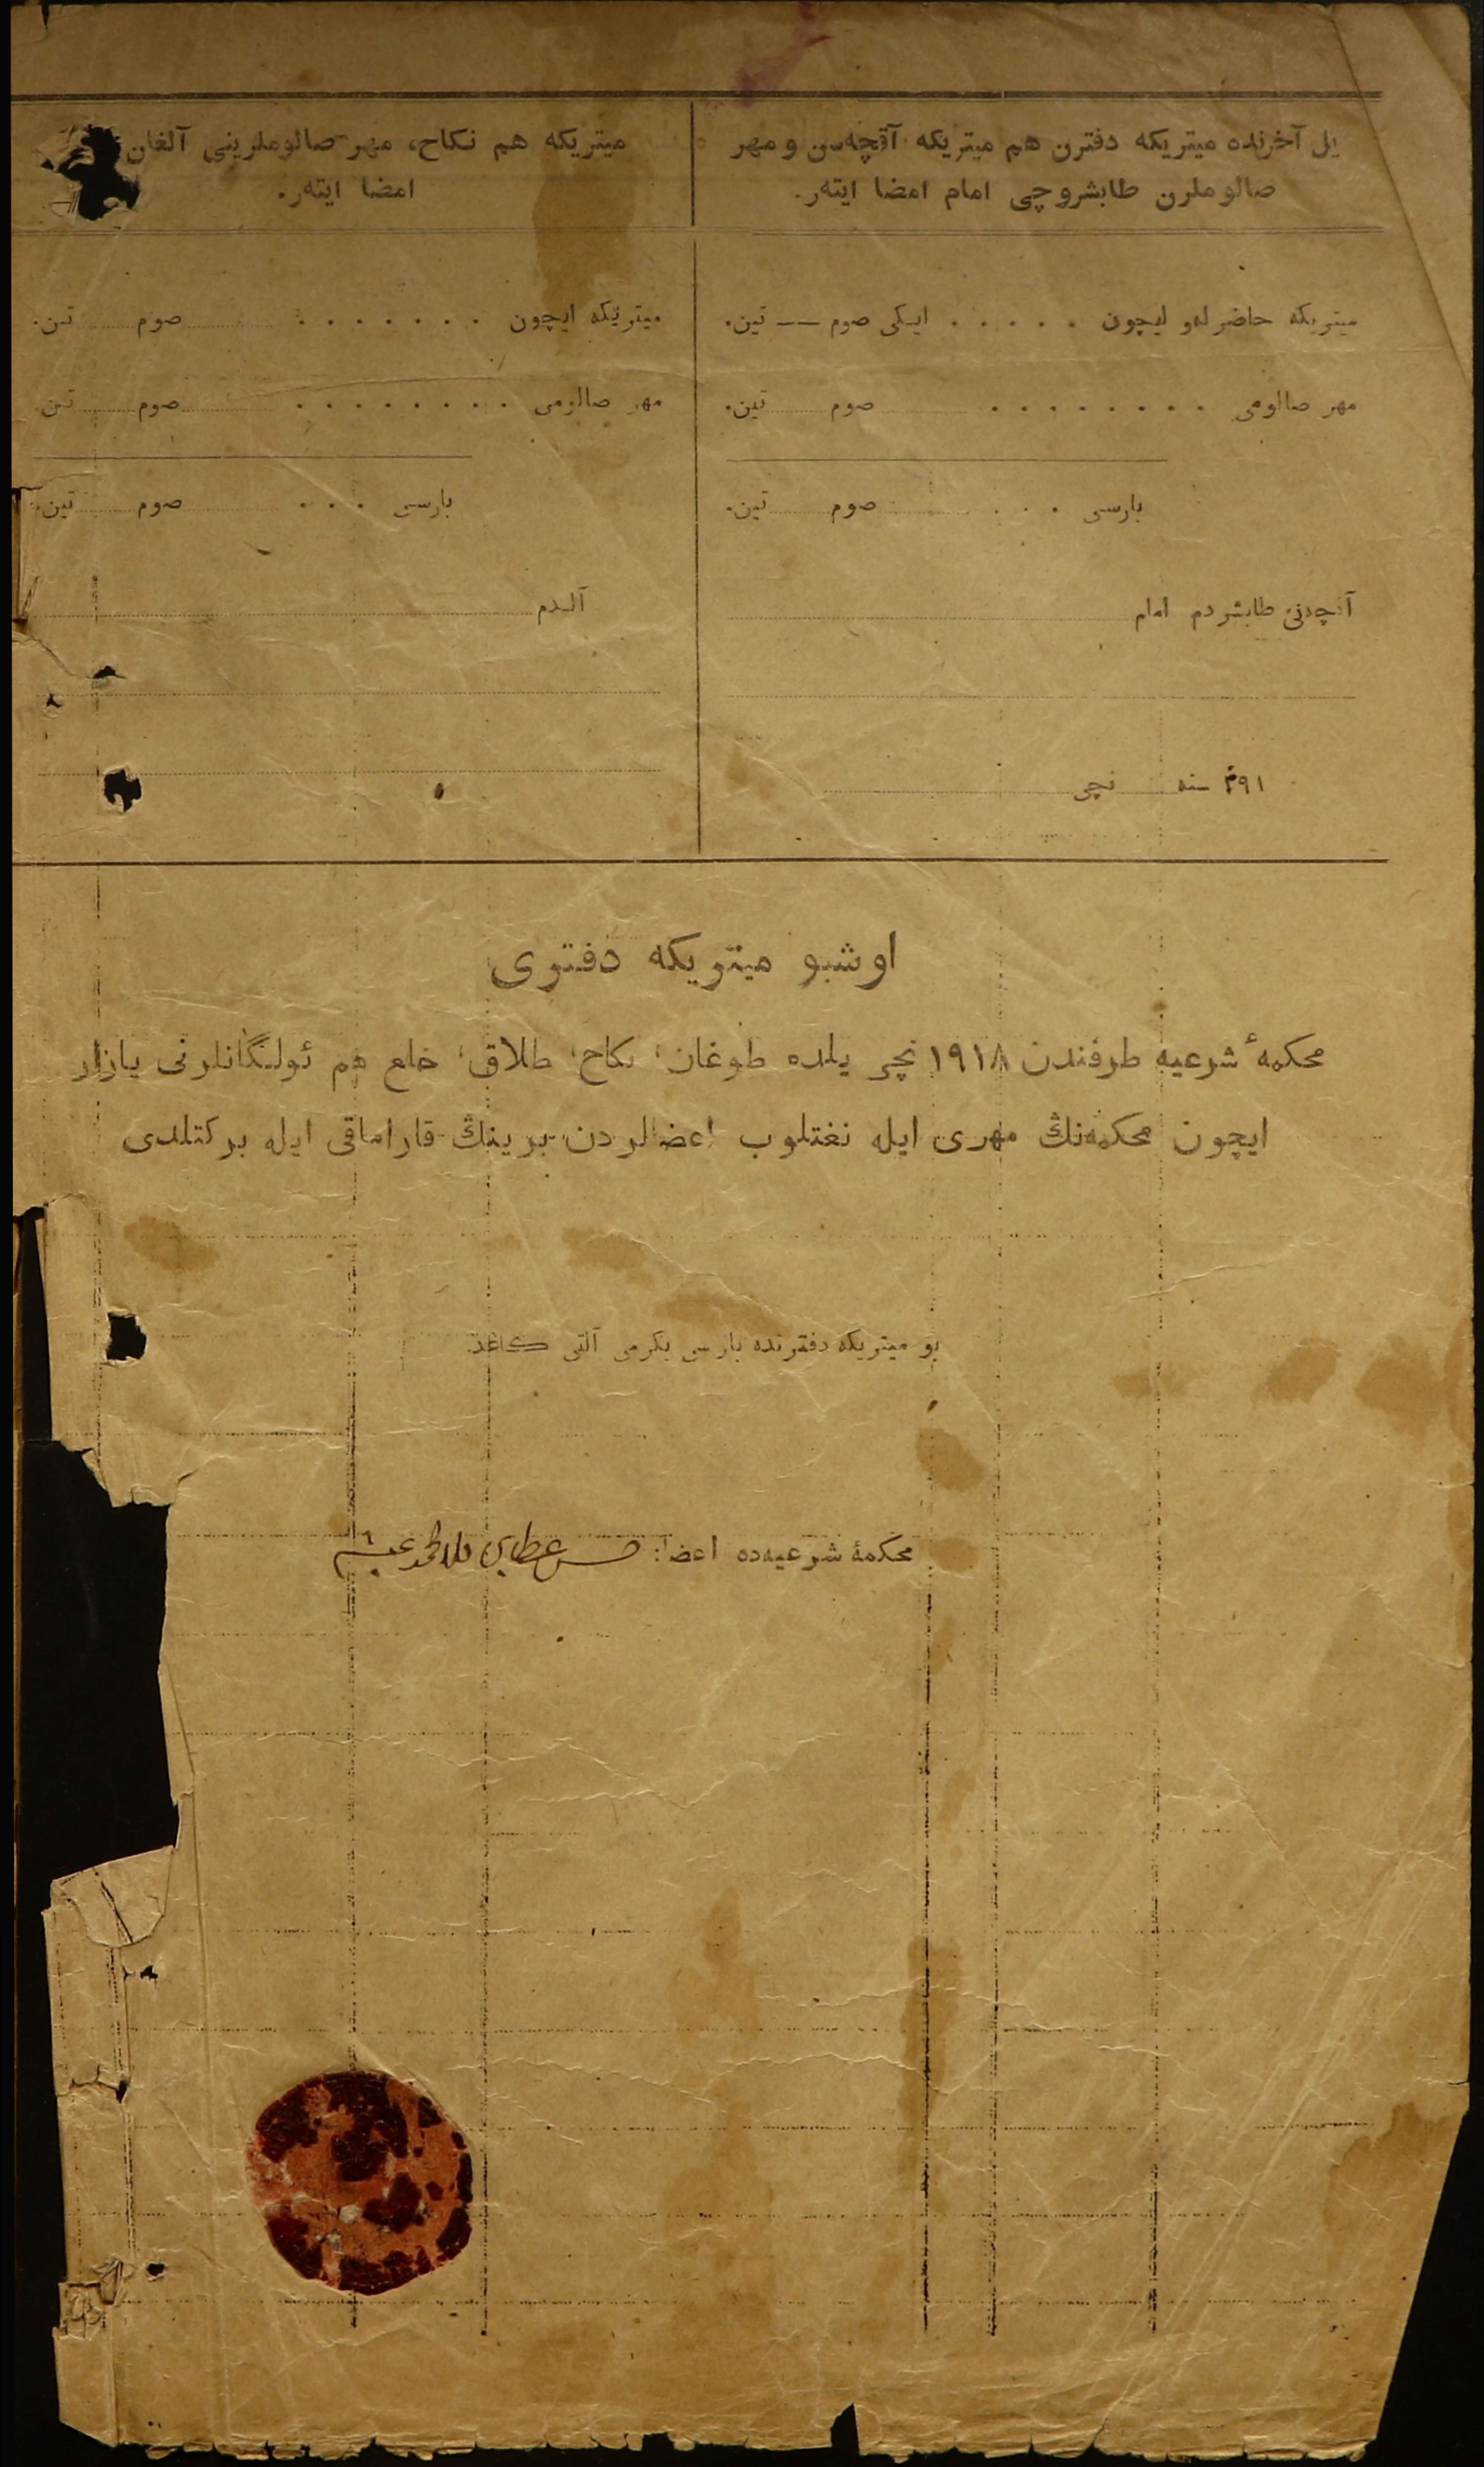 یل آخرنده میتریکه دفترن هم میتریکه آقچه‌سن و مهر
صالوملرن طابشروچی امام امضا ایته‌ر.
میتریکه هم نکاح، مهر صالوملرینی آلغان
امضا ایته‌ر.
میتریکه حاضرله‌و ایچون . . . . . ایکی صوم — تین.
مهر صالومی . . . . . . . . صوم تین.
بارسی . . . صوم تین.
آقچه‌نی طابشردم امام
۱۹۱ سنه نچی
میتریکه ایچون . . . . . . . صوم تین.
مهر صالومی . . . . . . . . صوم تین
بارسی . . . صوم تین.
آلدم
اوشبو میتریکه دفتری
محکمهٔ شرعیه طرفندن ۱۹۱۸ نچی یلده طوغان، نکاح، طلاق، خلع هم ئولنگانلرنی یازار
ایچون محکمه‌نڭ مهری ایله نغتلوب اعضالردن برینڭ قاراماقی ایله برکتلدی
بو میتریکه دفترنده بارسی یکرمی آلتی کاغذ.
محکمهٔ شرعیه‌ده اعضا: